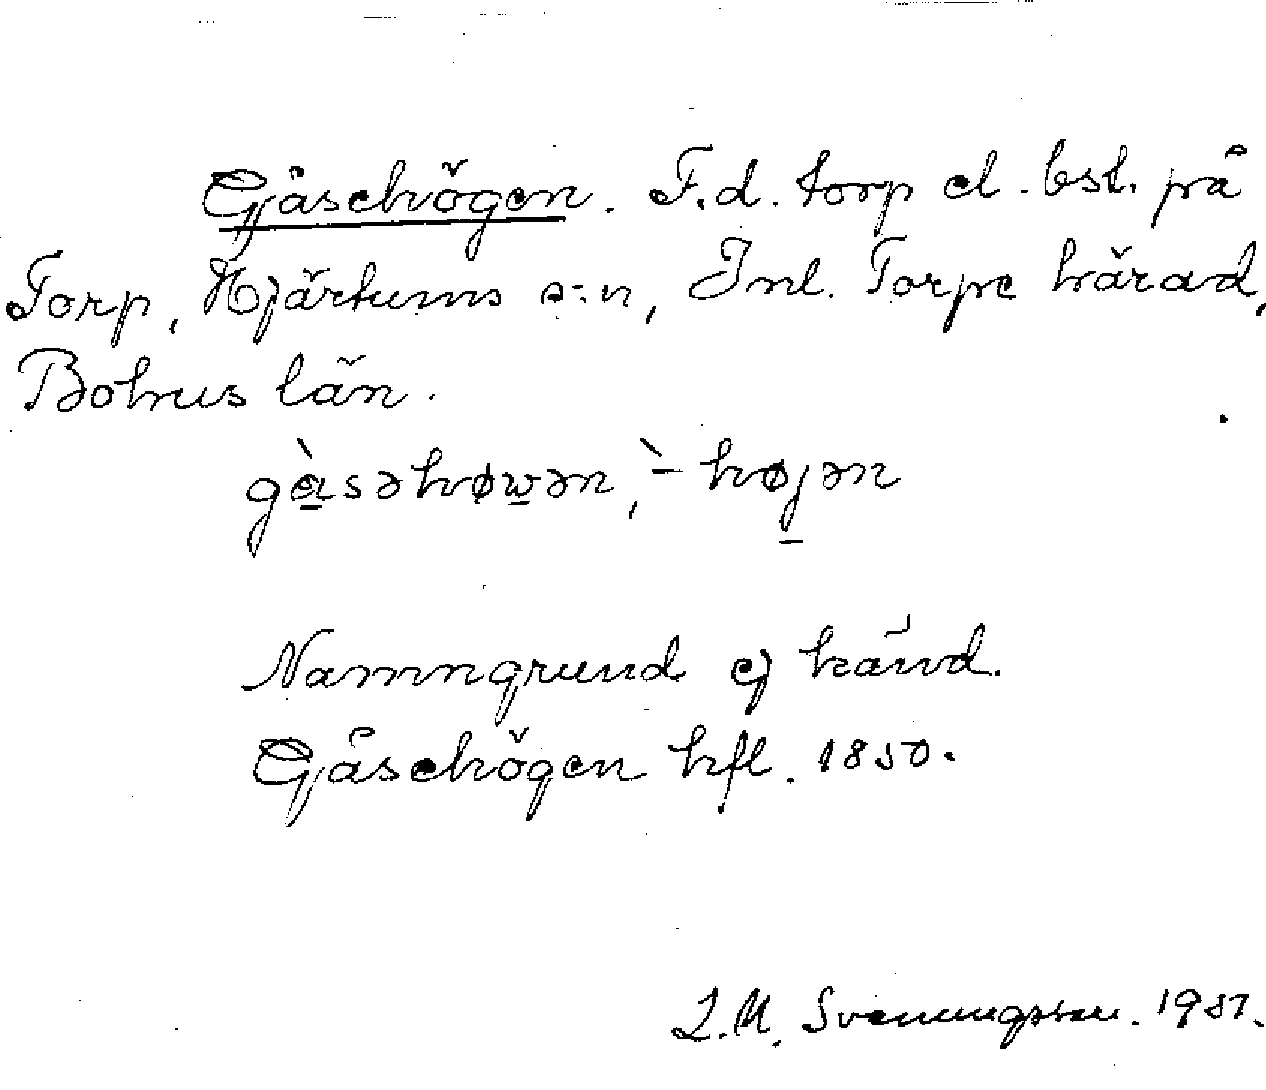 Gåsehögen. F.d. torp el. bst. på
Torp, Hjärtums s:n, Inl. Torpe härad,
Bohus län.
gɑ̀səhøwən, ̀- højən
Namngrund ej känd.
Gåsehögen hfl. 1850.
L.M. Svenungsson. 1931.